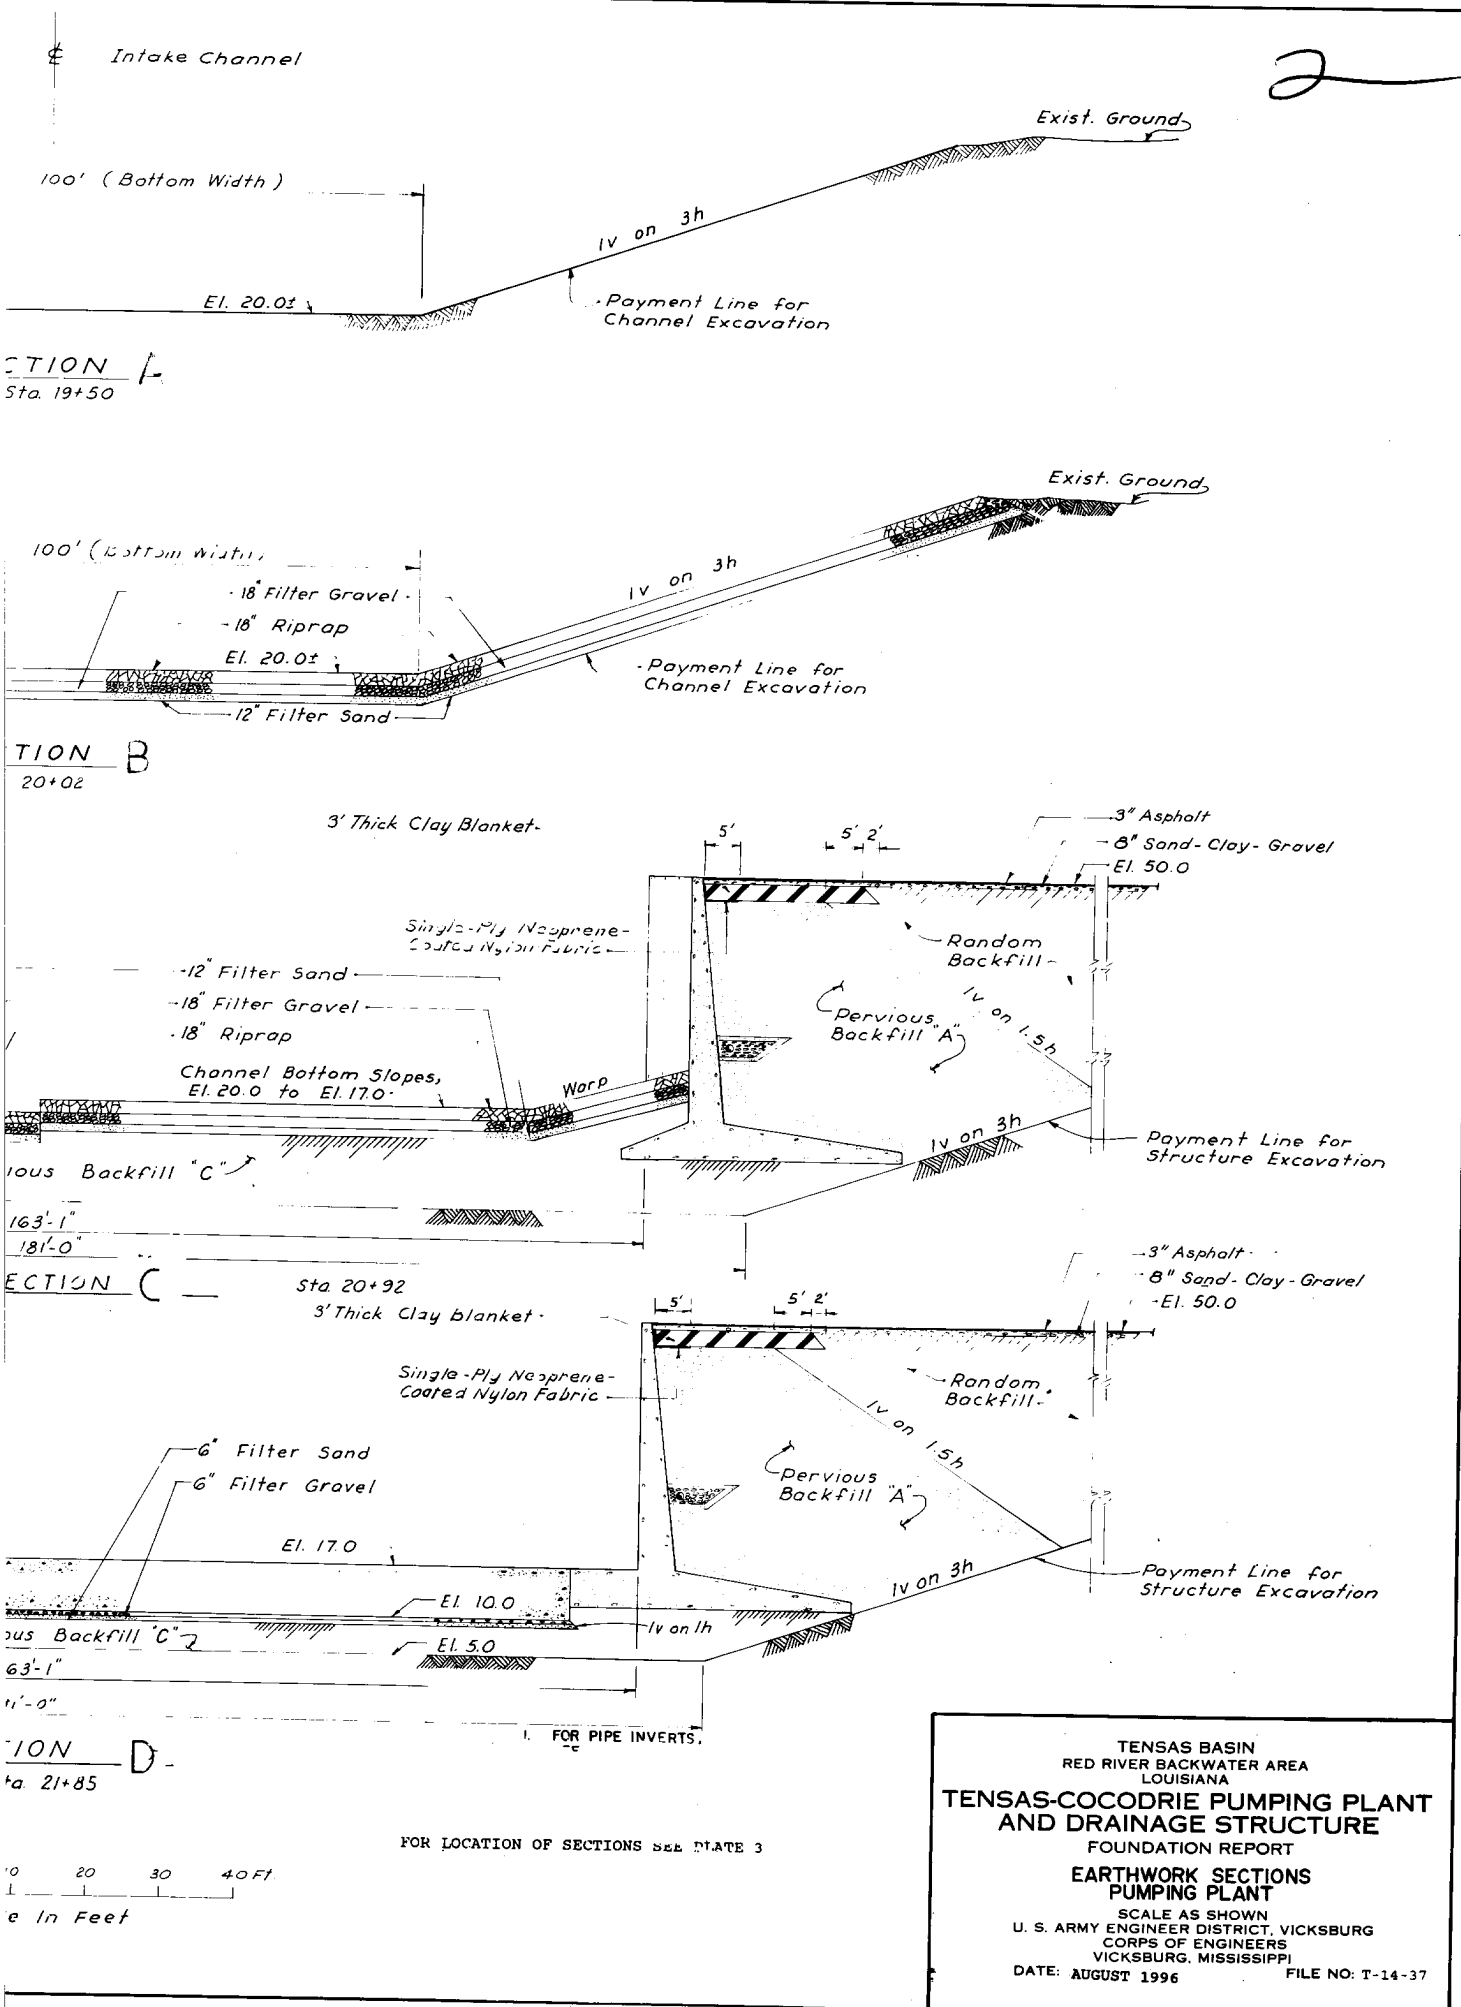 ℄ Intake Channel
2
Exist. Ground
100' (Bottom Width)
1v on 3h
El. 20.0±
Payment Line for
Channel Excavation
CTION A
Sta. 19+50
Exist. Ground
100' (Bottom Width)
1v on 3h
18" Filter Gravel
18" Riprap
El. 20.0±
Payment Line for
Channel Excavation
12" Filter Sand
TION B
20+02
3' Thick Clay Blanket
5'
5' 2'
3" Asphalt
8" Sand-Clay-Gravel
El. 50.0
Single-Ply Neoprene-
Coated Nylon Fabric
Random
Backfill
12" Filter Sand
18" Filter Gravel
18" Riprap
Pervious
Backfill "A"
1v on 1.5h
Channel Bottom Slopes,
El. 20.0 to El. 17.0
Warp
1v on 3h
Payment Line for
Structure Excavation
ious Backfill "C"
163'-1"
181'-0"
ECTION C
Sta. 20+92
3" Asphalt
8" Sand-Clay-Gravel
El. 50.0
3' Thick Clay blanket
5'
5' 2'
Single-Ply Neoprene-
Coated Nylon Fabric
Random
Backfill
1v on 1.5h
6" Filter Sand
6" Filter Gravel
Pervious
Backfill "A"
El. 17.0
1v on 3h
Payment Line for
Structure Excavation
El. 10.0
1v on 1h
ous Backfill "C"
El. 5.0
63'-1"
1'-0"
1. FOR PIPE INVERTS,
ION D
ta. 21+85
FOR LOCATION OF SECTIONS SEE PLATE 3
0 20 30 40 Ft.
e In Feet
TENSAS BASIN
RED RIVER BACKWATER AREA
LOUISIANA
TENSAS-COCODRIE PUMPING PLANT
AND DRAINAGE STRUCTURE
FOUNDATION REPORT
EARTHWORK SECTIONS
PUMPING PLANT
SCALE AS SHOWN
U. S. ARMY ENGINEER DISTRICT, VICKSBURG
CORPS OF ENGINEERS
VICKSBURG, MISSISSIPPI
DATE: AUGUST 1996 FILE NO: T-14-37